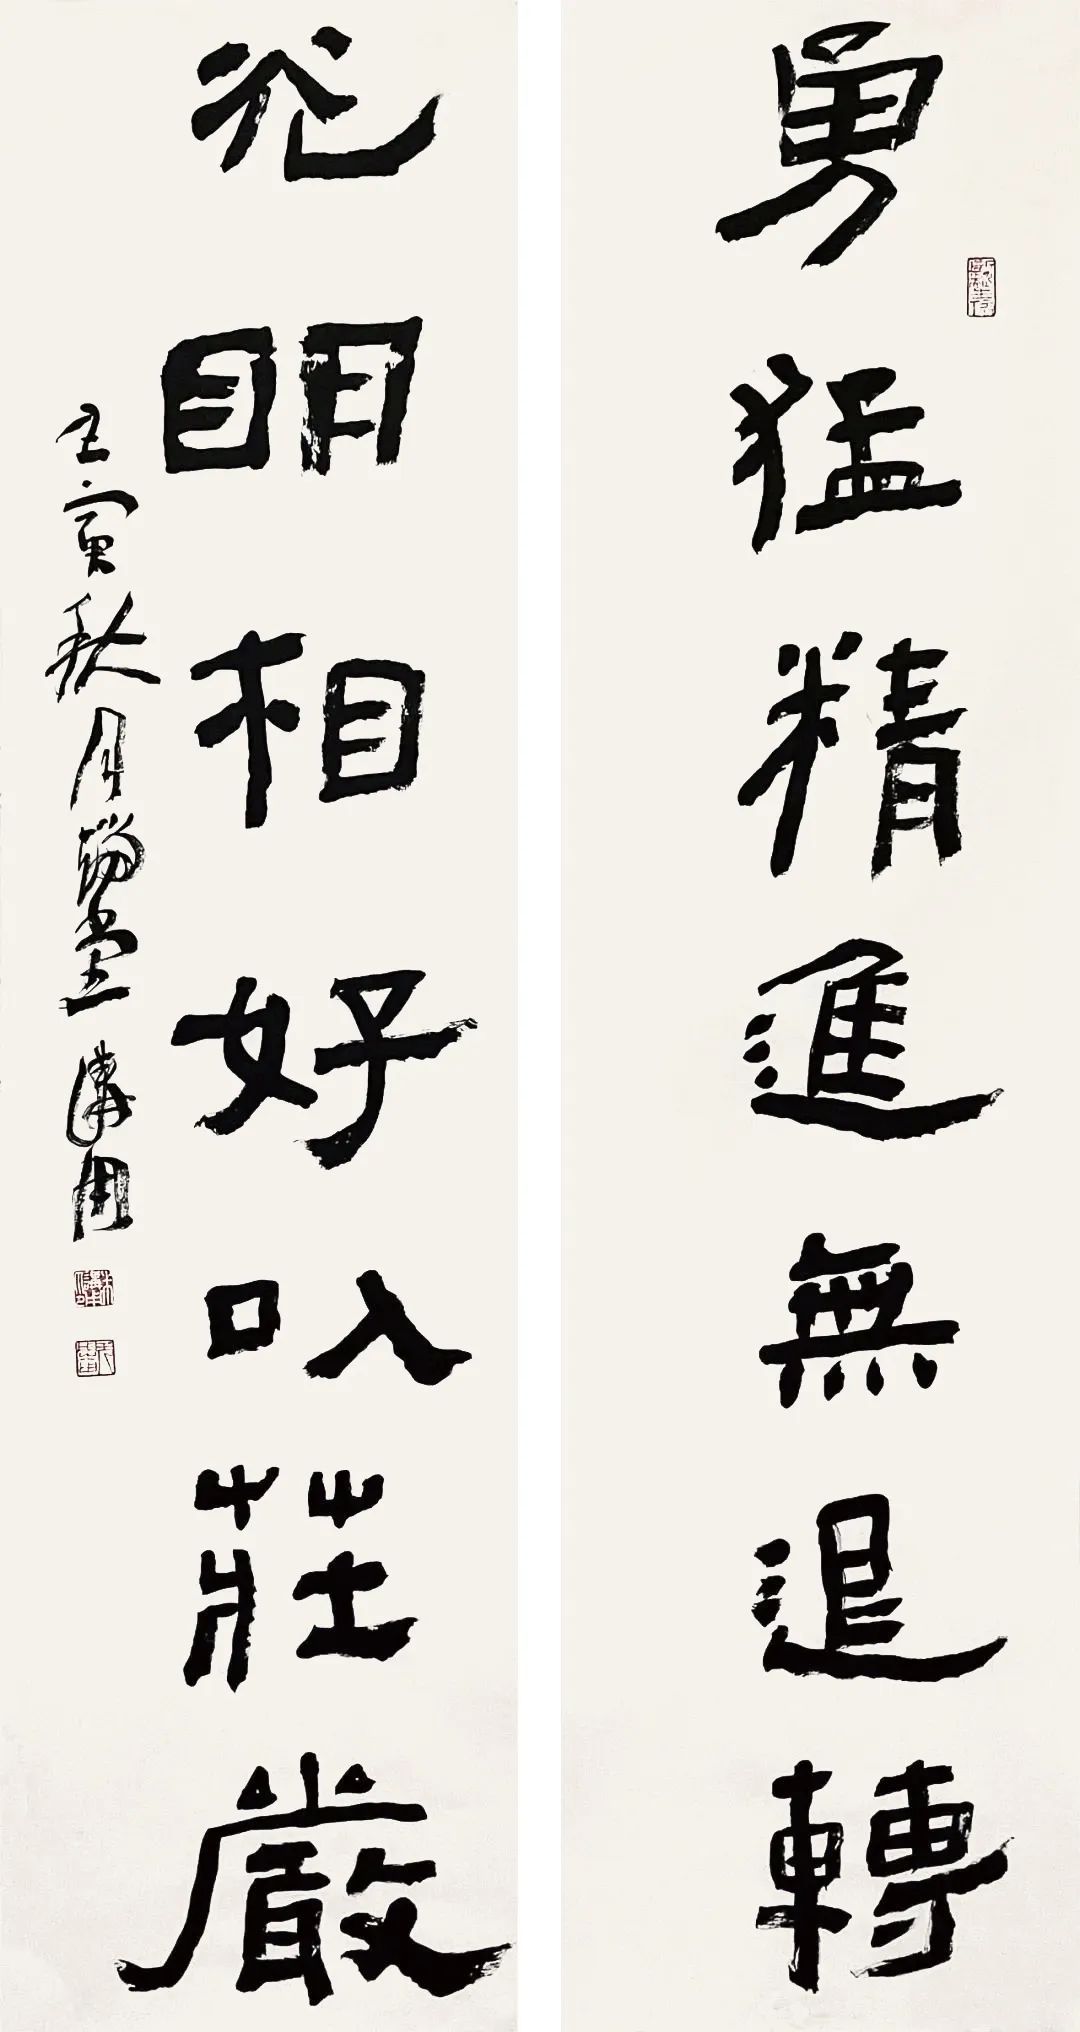 勇猛精進無退轉
光明相好以莊嚴
壬寅秋月